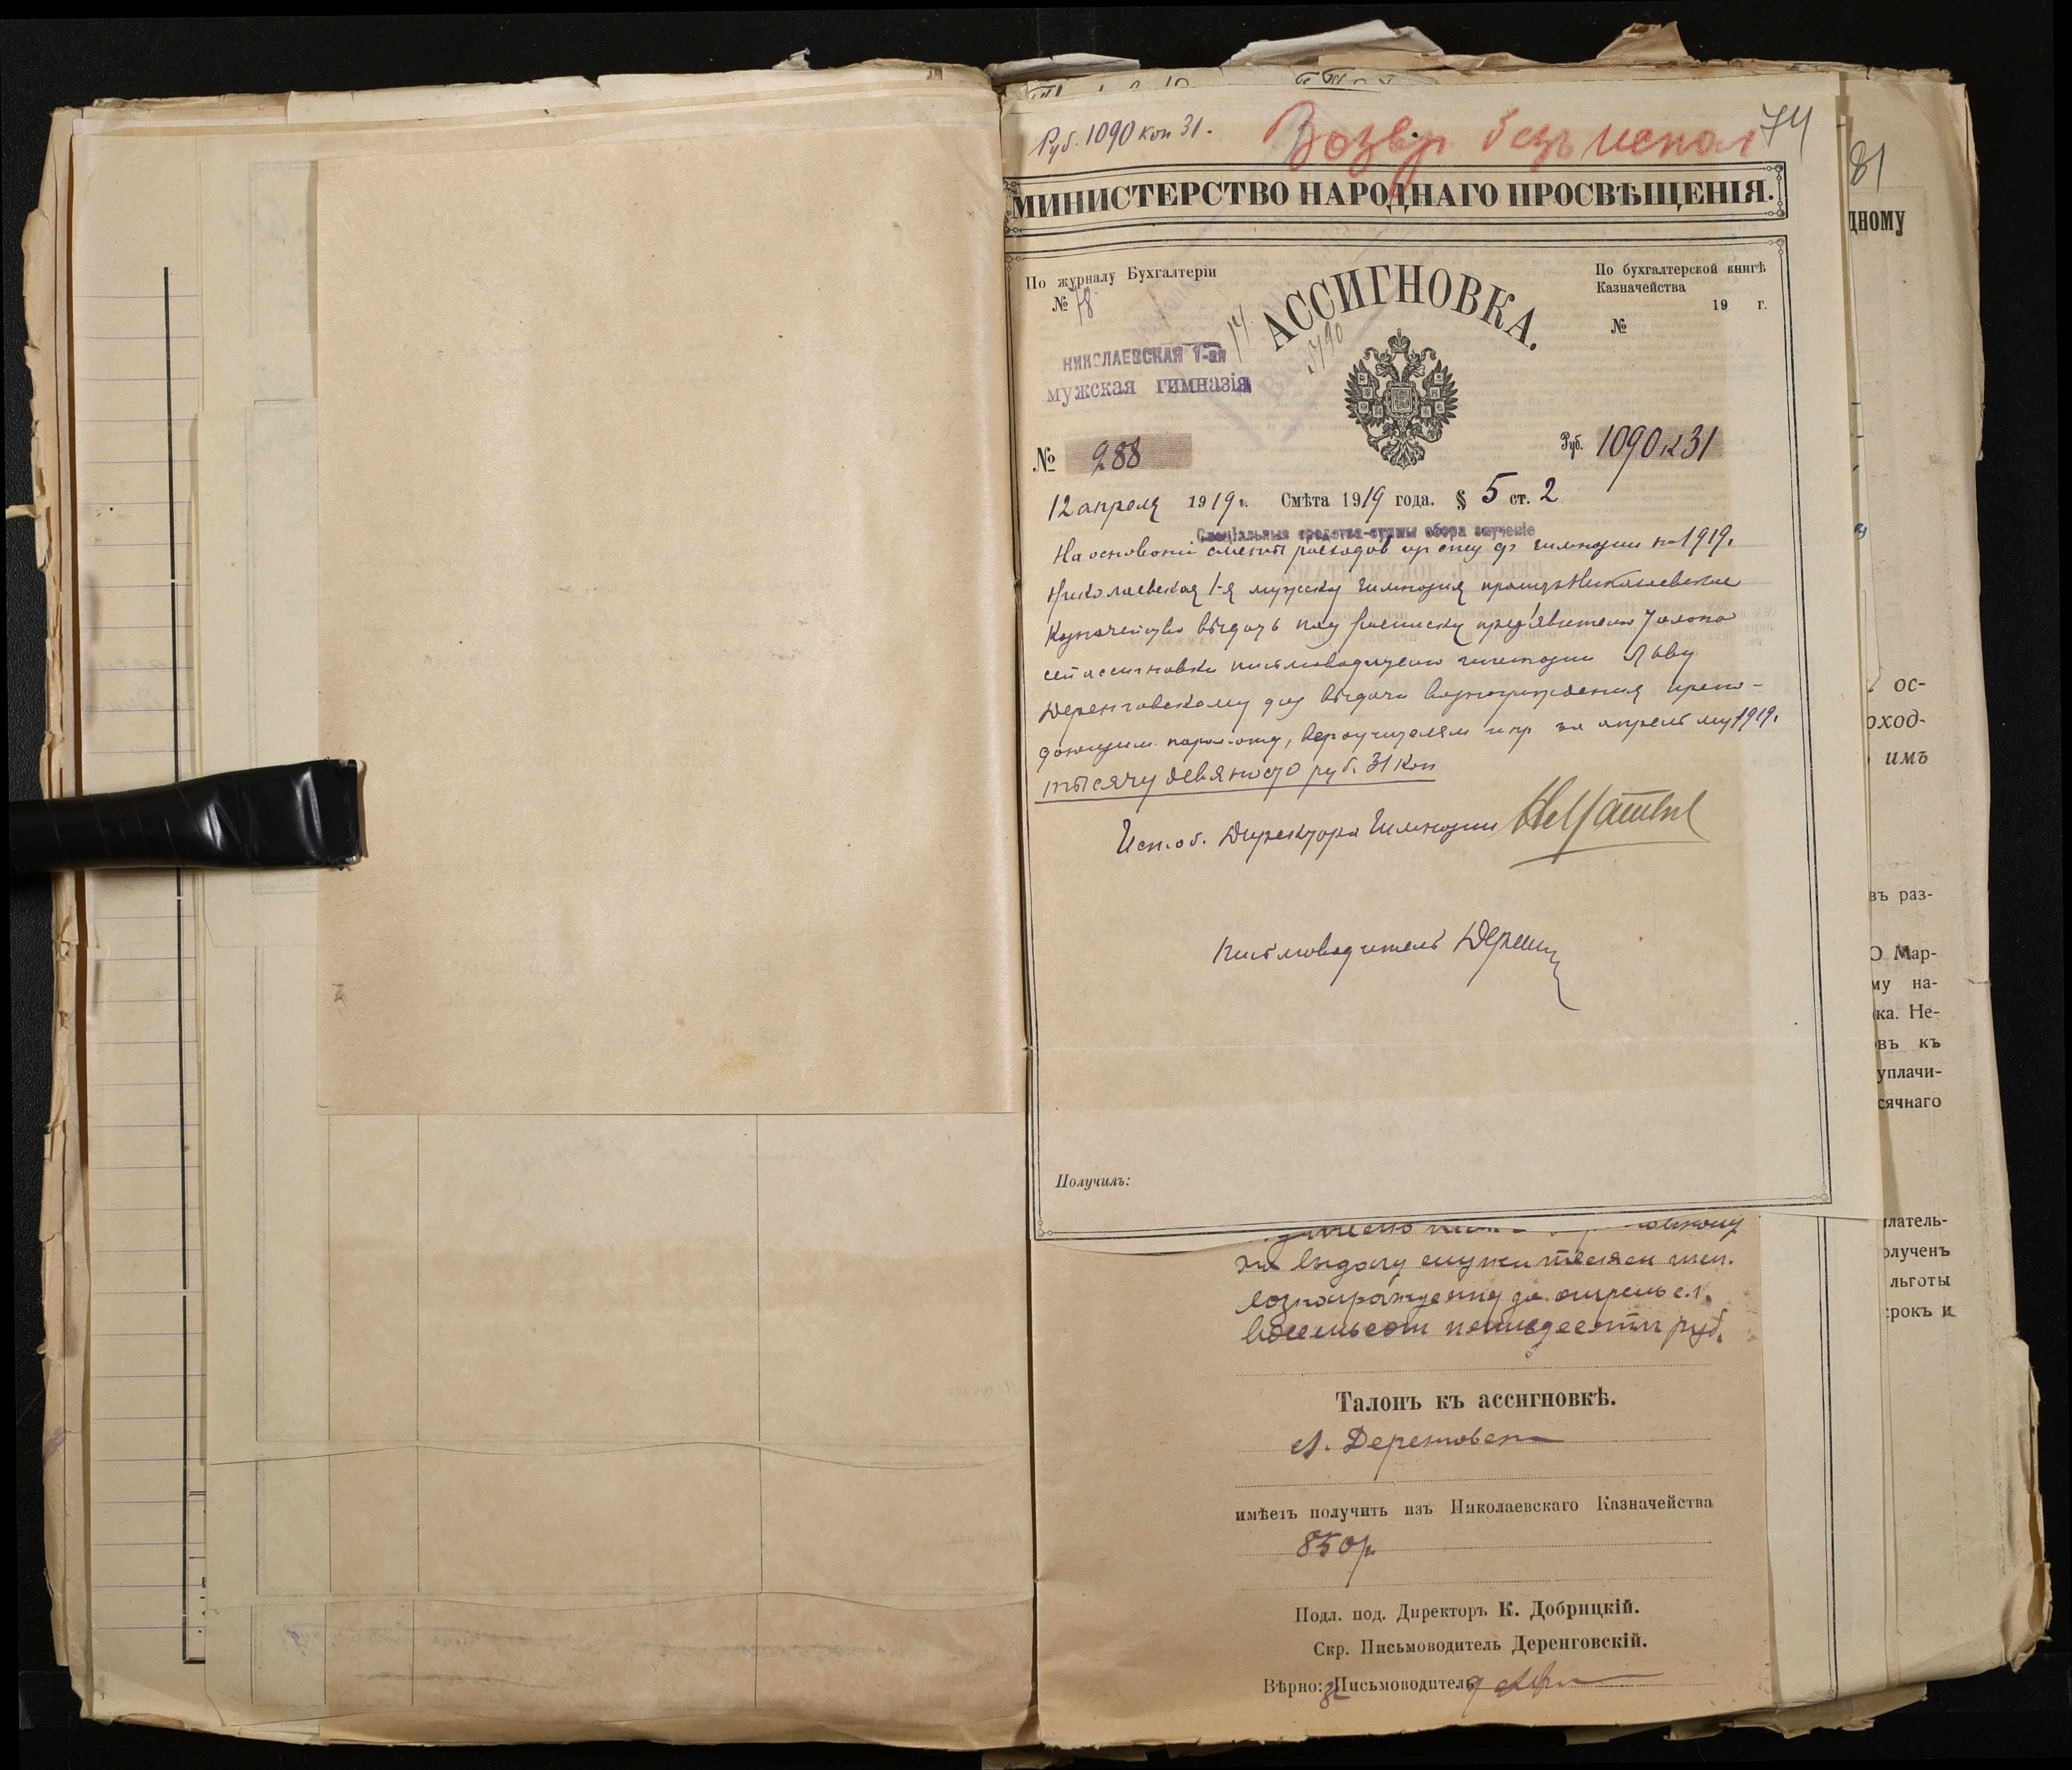 Руб. 1090 коп 31.
Возвр безъ испол
74
МИНИСТЕРСТВО НАРОДНАГО ПРОСВѢЩЕНІЯ.
По журналу Бухгалтеріи
№ 78
АССИГНОВКА.
По бухгалтерской книгѣ
Казначейства
19 г.
№
НИКОЛАЕВСКАЯ 1-ая
мужская гимназія
№ 288
Руб. 1090 к 31
12 апреля 1919 г. Смѣта 1919 года. § 5 ст. 2
Спеціальныя средства-суммы сбора за ученіе
На основаніи сметы расходов гимназии на 1919.
Николаевская 1-я мужская гимназия просит Николаевское
Казначейство выдать под расписку предъявителю талона
сей ассигновки письмоводителю гимназии Льву
Деренговскому для выдачи вознаграждения препо-
дающим, вероучителям и пр за апрель 1919.
тысячу девяносто руб. 31 коп
Исп. об. Директора Гимназии
Письмоводитель
Получилъ:
на выдачу служителям
вознаграждения за апрель с.г.
восемьсот пятьдесят руб.
Талонъ къ ассигновкѣ.
Л. Деренговск
имѣетъ получить изъ Николаевскаго Казначейства
850 р
Подл. под. Директоръ К. Добрицкій.
Скр. Письмоводитель Деренговскій.
Вѣрно: Письмоводитель
81
дному
ос-
оход-
имъ
въ раз-
О Мар-
му на-
ка. Не-
овъ къ
уплачи-
сячнаго
платель-
олученъ
льготы
срокъ и